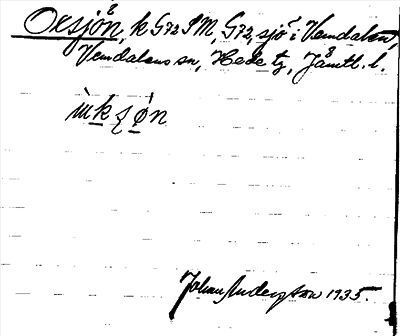 Oxsjön, k G72 S M, G72, sjö i Vemdalen,
Vemdalens sn, Hede tg, Jämtl. l.
ùkʂǿn
Johan Anderzson 1935.